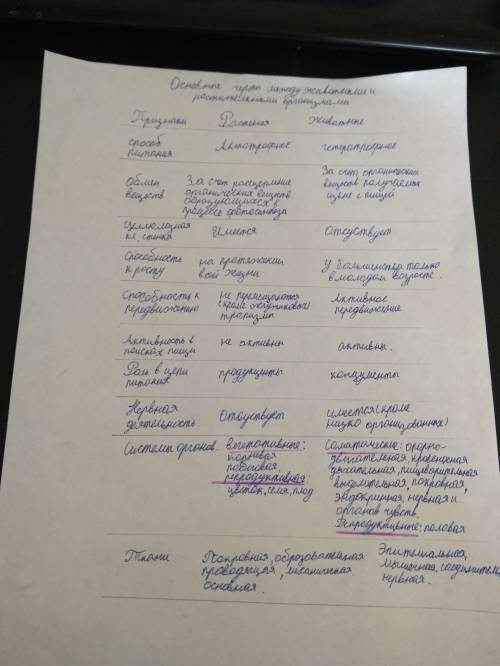 Основные черты между животными и
растительными организмами
Признаки Растения Животные
способ питания Автотрофное гетеротрофное
Обмен веществ За счет расщепление органических веществ образующихся в процессе фотосинтеза За счет органических веществ получаемых извне с пищей
Целлюлозная кл. стенка Имеется Отсуствует
Способность к росту на протяжении всей жизни У большинства только в молодом возрасте.
Способность к передвижению не перемещаются (кроме жгутиковых) Активное передвижение
Активность в поисках пищи не активны активны.
Роль в цепи питания продуценты консументы
Нервная деятельность Отсуствует имеется (кроме низко организованных)
Системы органов Вегетативные: корневая побеговая, репродуктивная: цветок, семя, плод Соматические: опорно-двигательная, кровеносная дыхательная, пищеварительная выделительная, покровная, эндокринная, нервная и органов чувств Репродуктивные: половая
Ткани Покровная, образовательная проводящая, механическая основная. Эпителиальная, мышечная, соединитель нервная.